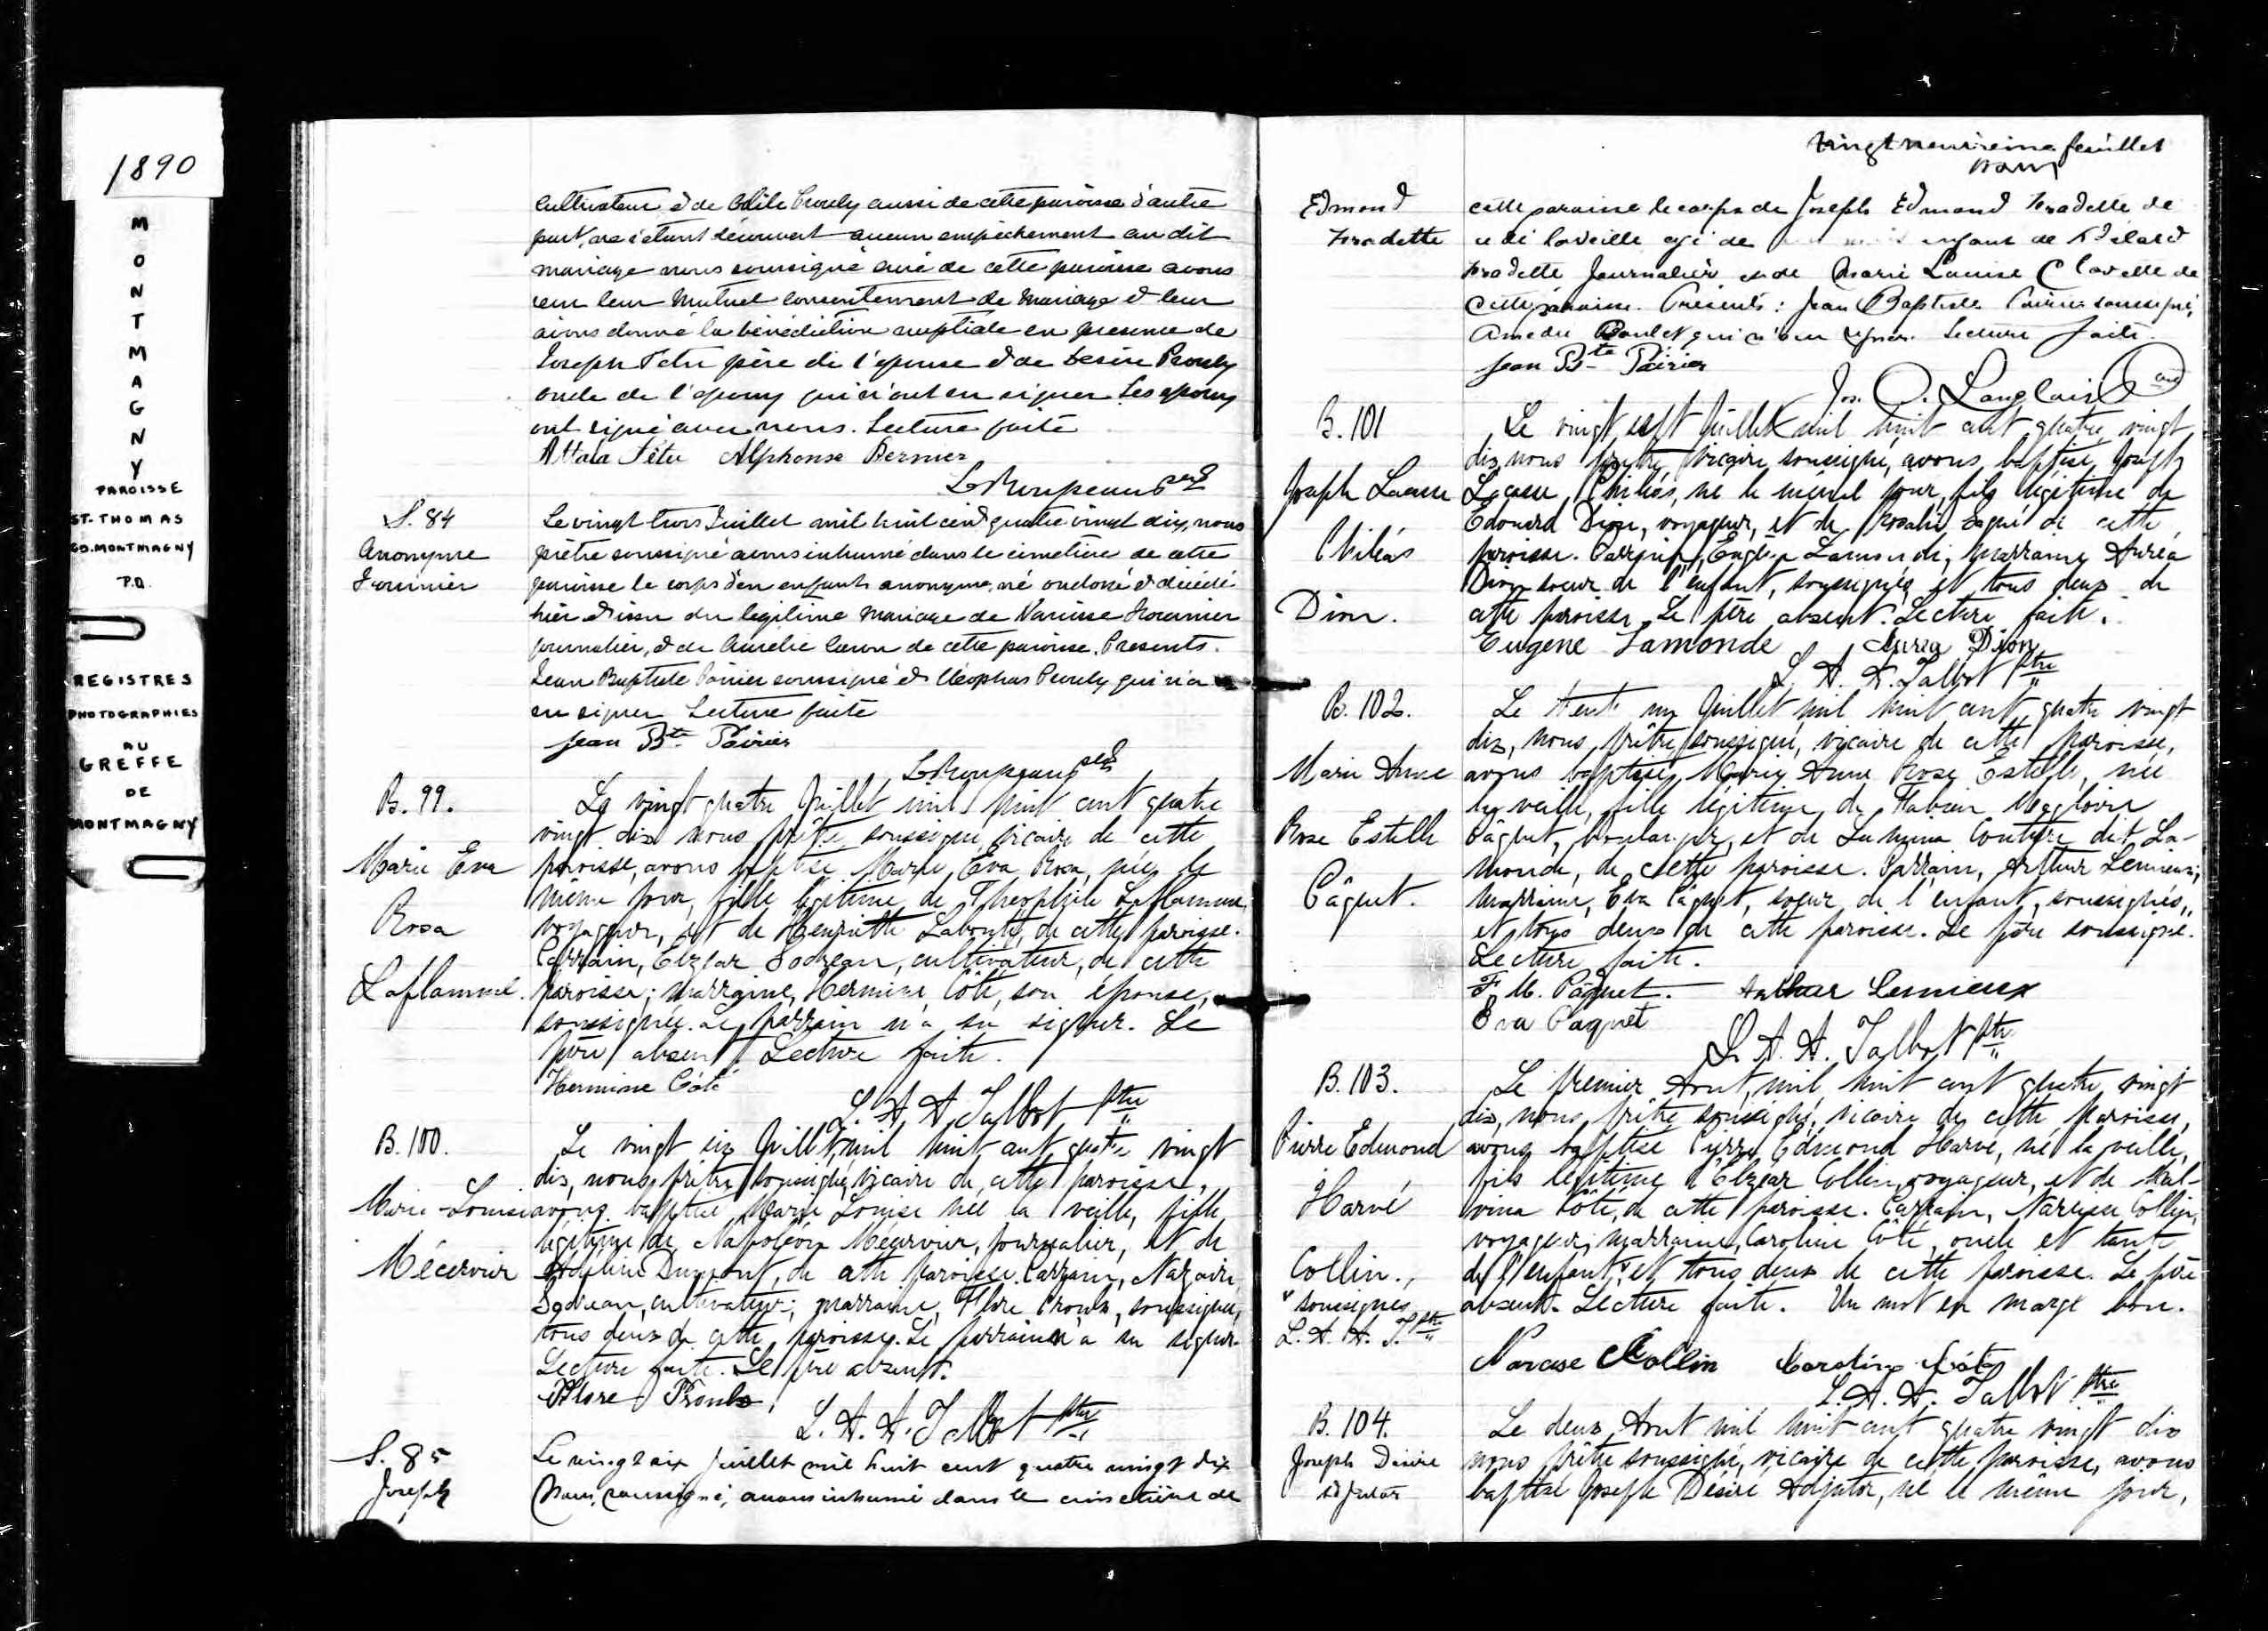 1890
MONTMAGNY
PAROISSE
ST-THOMAS
CO.MONTMAGNY
P.Q.
REGISTRES
PHOTOGRAPHIES
AU
GREFFE
DE
MONTMAGNY
cultivateur & de Odile Proulx aussi de cette paroisse d'autre
part, ne s'étant découvert aucun empêchement au dit
mariage nous soussigné curé de cette paroisse avons
reçu leur mutuel consentement de mariage & leur
avons donné la bénédiction nuptiale en presence de
Joseph Tetu père de l'epouse & de Desire Proulx
oncle de l'epoux qui n'ont su signer Les epoux
ont signé avec nous. Lecture faite
Attala Têtu Alphonse Bernier
S. 84
Anonyme
Fournier
Le vingt trois Juillet mil huit cent quatre vingt dix, nous
prêtre soussigné avons inhumé dans le cimetière de cette
paroisse le corps d'un enfant anonyme, né ondoyé & décédé
hier & issu du legitime mariage de Narcisse Fournier
journalier, & de Aurelie Caron de cette paroisse. Presents.
Jean Baptiste Poirier soussigné & Cléophas Proulx qui n'a
su signer Lecture faite
Jean Bte Poirier
B. 99.
Marie Eva
Rosa
Laflamme.
Le vingt-quatre Juillet mil huit cent quatre
vingt dix nous prêtre soussigné, vicaire de cette
paroisse, avons baptisé Marie, Eva, Rosa, née le
même jour, fille légitime de Théophile Laflamme,
voyageur, et de Henriette Labonté, de cette paroisse.
Parrain, Elzéar Bodreau, cultivateur, de cette
paroisse; marraine, Hermine Côté, son épouse,
soussignée. Le parrain n'a su signer. Le
père absent. Lecture faite.
Hermine Côté
L. A. A. Talbot Ptre
B. 100.
Marie-Louise
Mécervier
Le vingt six Juillet, mil huit cent quatre vingt
dix, nous, prêtre soussigné, vicaire de cette paroisse,
avons baptisé Marie Louise née la veille, fille
légitime de Napoléon Mécervier, journalier, et de
Dumont, de cette paroisse. Parrain, Nazaire
Bodreau, cultivateur; marraine, Flore Proulx, soussignée,
tous deux de cette paroisse. Le parrain n'a su signer.
Lecture faite. Le père absent.
Flore Proulx
L. A. A. Talbot Ptre
S. 85
Joseph
Le vingt six juillet mil huit cent quatre vingt dix
Nous, soussigné, avons inhumé dans le cimetière de
vingt neuvieme feuillet
Edmond
Fradette
cette paroisse le corps de Joseph Edmond Fradette de
cédé la veille agé de enfant de Adelard
Fradette Journalier et de Marie Louise Clavette de
cette paroisse. Présents: Jean Baptiste Poirier soussigné,
Amedee Boulet qui n'a su signer. Lecture faite.
Jean Bte Poirier
Jos. O. Langlais
B. 101
Joseph Lacasse
Chiléas
Dion.
Le vingt sept Juillet mil huit cent quatre vingt
dix, nous prêtre, vicaire soussigné, avons baptisé Joseph
Lacasse, Chiléas, né le même jour, fils légitime de
Edouard Dion, voyageur, et de Rosalie Gagné de cette
paroisse. Parrain, Eugène Lamonde; marraine Auréa
Dion soeur de l'enfant, soussignés et tous deux de
cette paroisse. Le père absent. Lecture faite.
Eugene Lamonde Aurea Dion
L. A. A. Talbot Ptre
B. 102.
Marie Anne
Rose Estelle
Pâquet.
Le trente un Juillet mil huit cent quatre vingt
dix, nous, prêtre soussigné, vicaire de cette paroisse,
avons baptisé, Marie Anne Rose Estelle, née
la veille, fille légitime de Fabien Magloire
Pâquet, boulanger, et de Couture dit La-
monde, de cette paroisse. Parrain, Arthur Lemieux;
marraine, Eva Pâquet, soeur de l'enfant, soussignés,
et tous deux de cette paroisse. Le père soussigné.
Lecture faite.
F. M. Pâquet. Arthur Lemieux
Eva Paquet
L. A. A. Talbot Ptre
B. 103.
Pierre Edmond
Harvé
Collin.
soussignés
L. A. A. T. Ptre
Le premier Aout, mil huit cent quatre vingt
dix, nous, prêtre soussigné, vicaire de cette paroisse,
avons baptisé Pierre Edmond Harvé, né la veille,
fils légitime d'Elzéar Collin, voyageur, et de Mal-
vina Côté, de cette paroisse. Parrain, Narcisse Collin,
voyageur; marraine, Caroline Côté, oncle et tante
de l'enfant, et tous deux de cette paroisse. Le père
absent. Lecture faite. Un mot en marge bon.
Narcise Collin Caroline Côté
L. A. A. Talbot Ptre
B. 104.
Joseph Désiré
Adjutor
Le deux Aout mil huit cent quatre vingt dix
nous prêtre soussigné, vicaire de cette paroisse, avons
baptisé Joseph Désiré Adjutor, né le même jour,